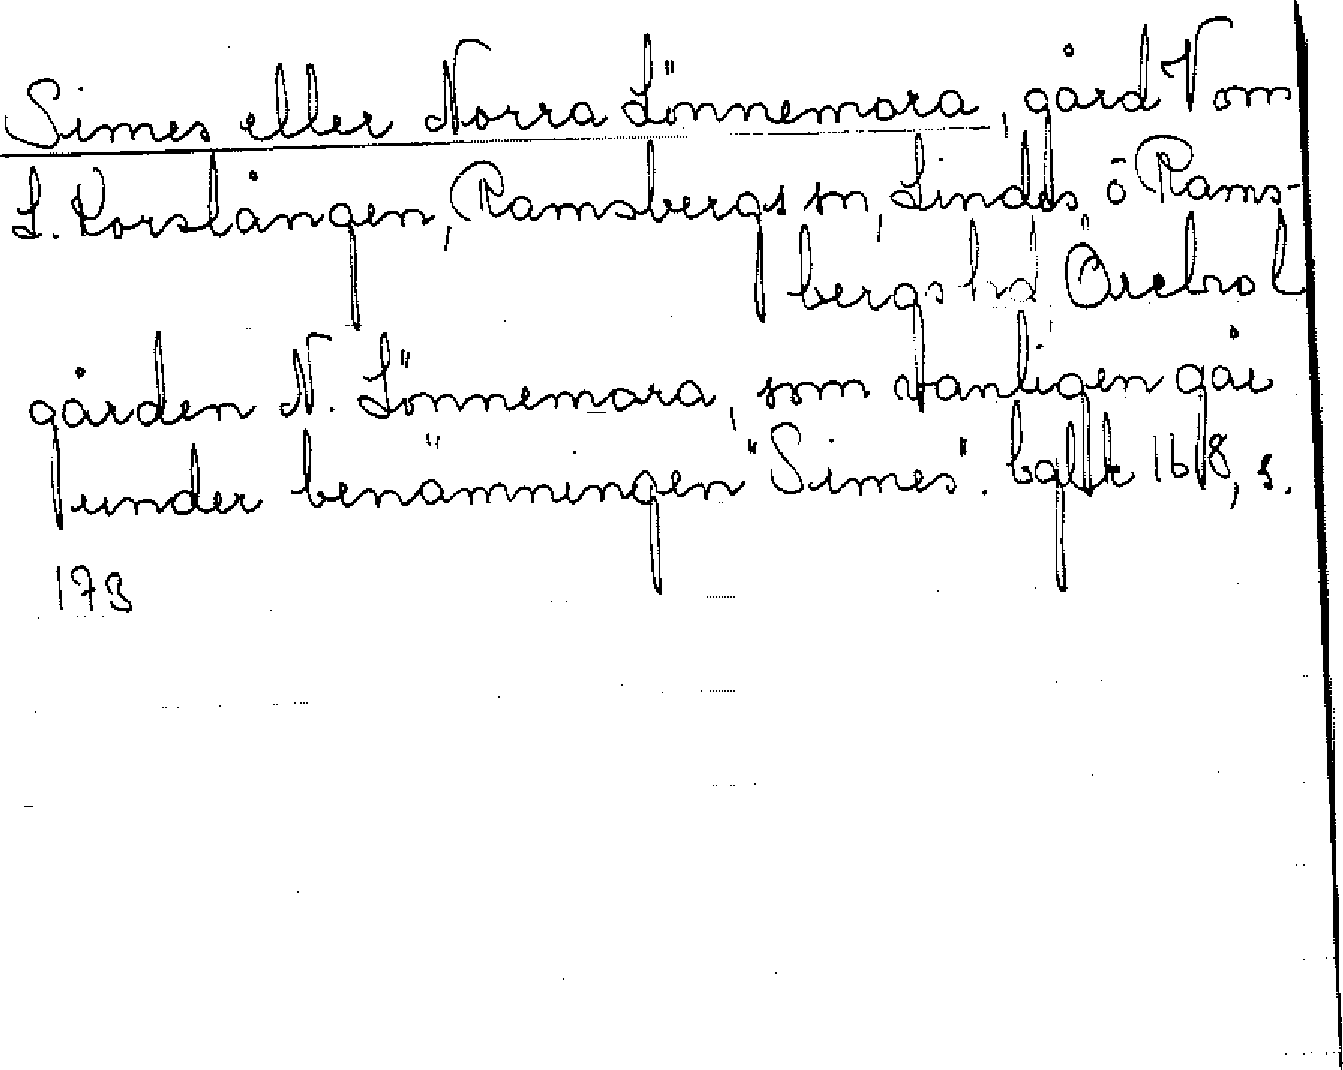 Simes eller Norra Lönnemora, gård V om
L. Korslången, Ramsbergs sn, Lindes o Rams-
bergs hd Örebro l
gården N. Lönnemora, som vanligen går
under benämningen "Simes". bqfk 1618, s.
173